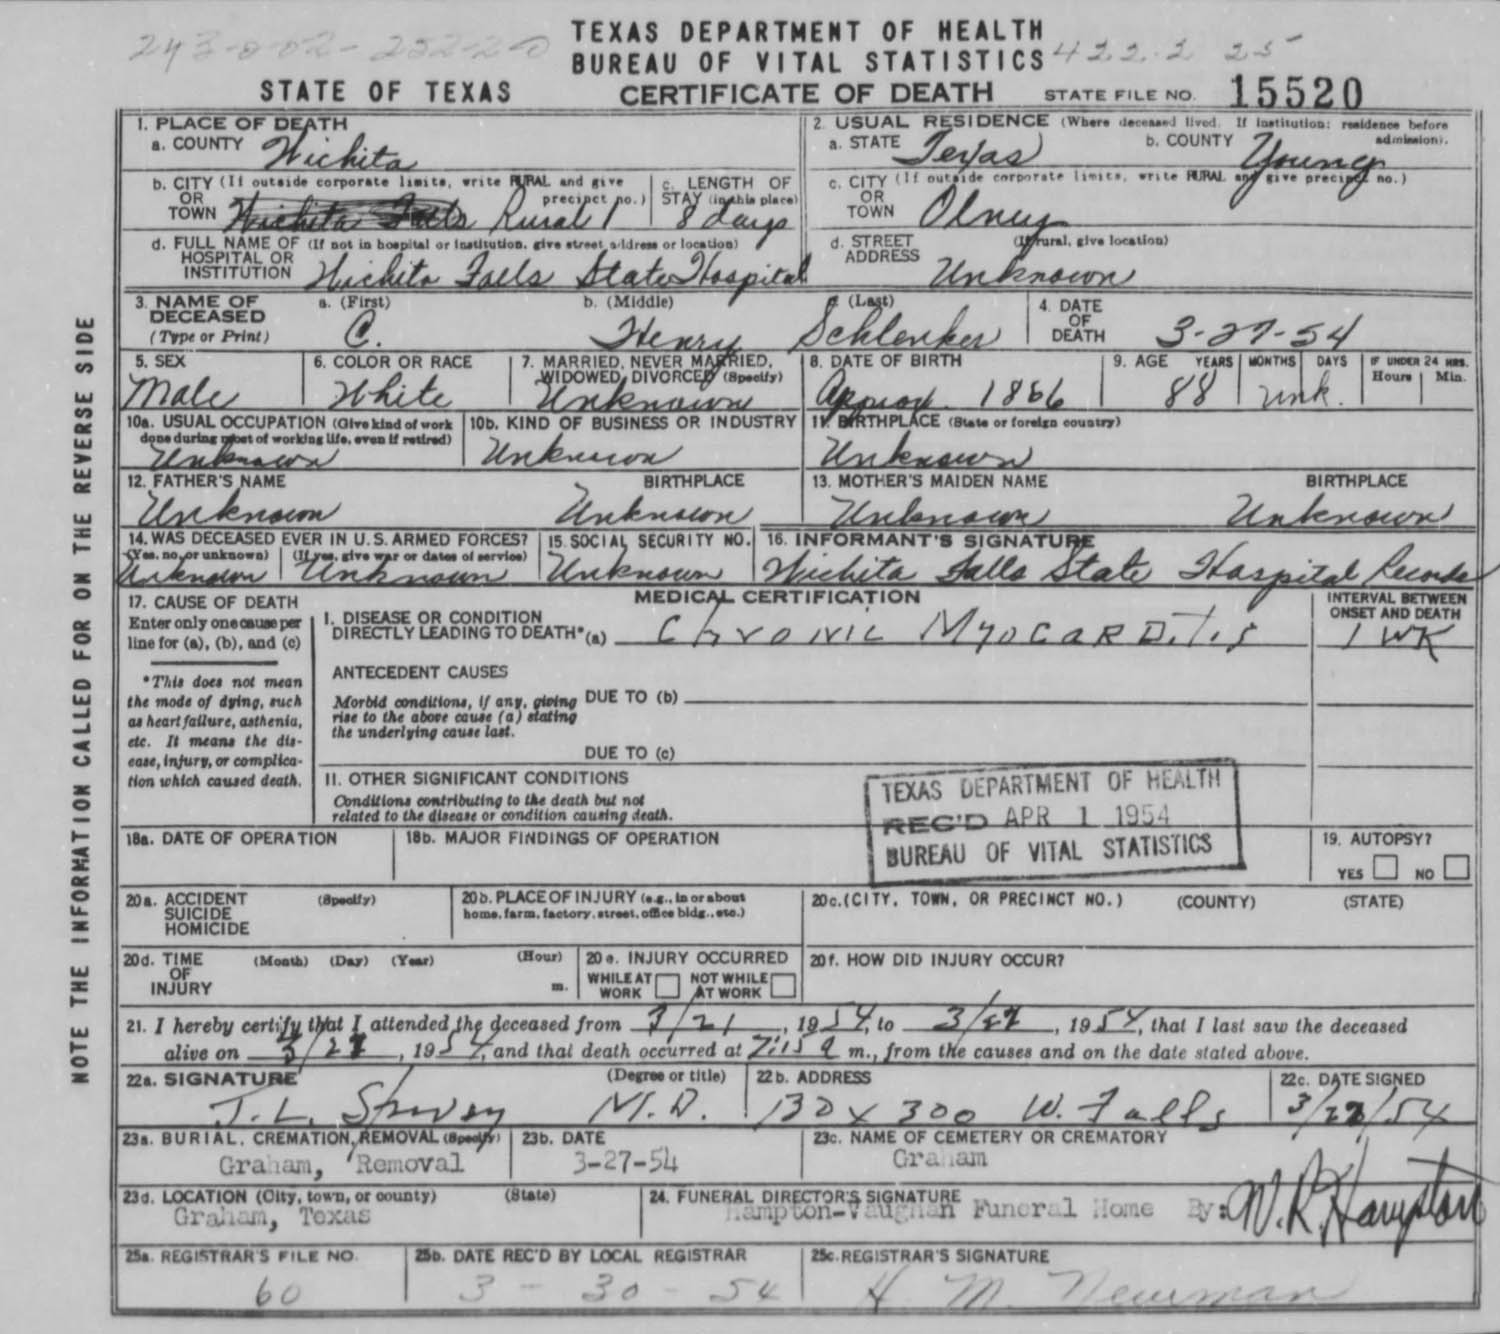 243-0-02-252-20
TEXAS DEPARTMENT OF HEALTH
BUREAU OF VITAL STATISTICS 422.2 25
STATE OF TEXAS CERTIFICATE OF DEATH STATE FILE NO. 15520
1. PLACE OF DEATH
a. COUNTY Wichita
2. USUAL RESIDENCE (Where deceased lived. If institution: residence before admission).
a. STATE Texas b. COUNTY Young
b. CITY (If outside corporate limits, write RURAL and give precinct no.)
OR
TOWN Wichita Falls Rural 1
c. LENGTH OF
STAY (in this place)
8 days
c. CITY (If outside corporate limits, write RURAL and give precinct no.)
OR
TOWN Olney
d. FULL NAME OF (If not in hospital or institution, give street address or location)
HOSPITAL OR
INSTITUTION Wichita Falls State Hospital
d. STREET (If rural, give location)
ADDRESS Unknown
3. NAME OF DECEASED
(Type or Print)
a. (First) C.
b. (Middle) Henry
c. (Last) Schlenker
4. DATE
OF
DEATH 3-27-54
5. SEX
Male
6. COLOR OR RACE
White
7. MARRIED, NEVER MARRIED,
WIDOWED, DIVORCED (Specify)
Unknown
8. DATE OF BIRTH
Approx. 1866
9. AGE YEARS MONTHS DAYS IF UNDER 24 HRS.
Hours Min.
88 unk.
10a. USUAL OCCUPATION (Give kind of work
done during most of working life, even if retired)
Unknown
10b. KIND OF BUSINESS OR INDUSTRY
Unknown
11. BIRTHPLACE (State or foreign country)
Unknown
12. FATHER'S NAME BIRTHPLACE
Unknown Unknown
13. MOTHER'S MAIDEN NAME BIRTHPLACE
Unknown Unknown
14. WAS DECEASED EVER IN U.S. ARMED FORCES?
(Yes, no, or unknown) (If yes, give war or dates of service)
Unknown Unknown
15. SOCIAL SECURITY NO.
Unknown
16. INFORMANT'S SIGNATURE
Wichita Falls State Hospital Records
17. CAUSE OF DEATH
Enter only one cause per
line for (a), (b), and (c)
*This does not mean
the mode of dying, such
as heart failure, asthenia,
etc. It means the dis-
ease, injury, or complica-
tion which caused death.
MEDICAL CERTIFICATION
INTERVAL BETWEEN
ONSET AND DEATH
I. DISEASE OR CONDITION
DIRECTLY LEADING TO DEATH* (a) Chronic Myocarditis 1 WK
ANTECEDENT CAUSES
Morbid conditions, if any, giving
rise to the above cause (a) stating
the underlying cause last.
DUE TO (b)
DUE TO (c)
II. OTHER SIGNIFICANT CONDITIONS
Conditions contributing to the death but not
related to the disease or condition causing death.
TEXAS DEPARTMENT OF HEALTH
REC'D APR 1 1954
BUREAU OF VITAL STATISTICS
18a. DATE OF OPERATION
18b. MAJOR FINDINGS OF OPERATION
19. AUTOPSY?
YES NO
20a. ACCIDENT (Specify)
SUICIDE
HOMICIDE
20b. PLACE OF INJURY (e.g., in or about
home, farm, factory, street, office bldg., etc.)
20c. (CITY, TOWN, OR PRECINCT NO.) (COUNTY) (STATE)
20d. TIME (Month) (Day) (Year) (Hour)
OF
INJURY m.
20e. INJURY OCCURRED
WHILE AT WORK NOT WHILE AT WORK
20f. HOW DID INJURY OCCUR?
21. I hereby certify that I attended the deceased from 3/21, 1954, to 3/27, 1954, that I last saw the deceased
alive on 3/27, 1954, and that death occurred at 7:15 a m., from the causes and on the date stated above.
22a. SIGNATURE (Degree or title)
T. L. M.D.
22b. ADDRESS
Box 300 W. Falls
22c. DATE SIGNED
3/27/54
23a. BURIAL, CREMATION, REMOVAL (Specify)
Graham, Removal
23b. DATE
3-27-54
23c. NAME OF CEMETERY OR CREMATORY
Graham
23d. LOCATION (City, town, or county) (State)
Graham, Texas
24. FUNERAL DIRECTOR'S SIGNATURE
Hampton-Vaughan Funeral Home By: W. R. Hampton
25a. REGISTRAR'S FILE NO.
60
25b. DATE REC'D BY LOCAL REGISTRAR
3-30-54
25c. REGISTRAR'S SIGNATURE
H. M. Newman
NOTE THE INFORMATION CALLED FOR ON THE REVERSE SIDE